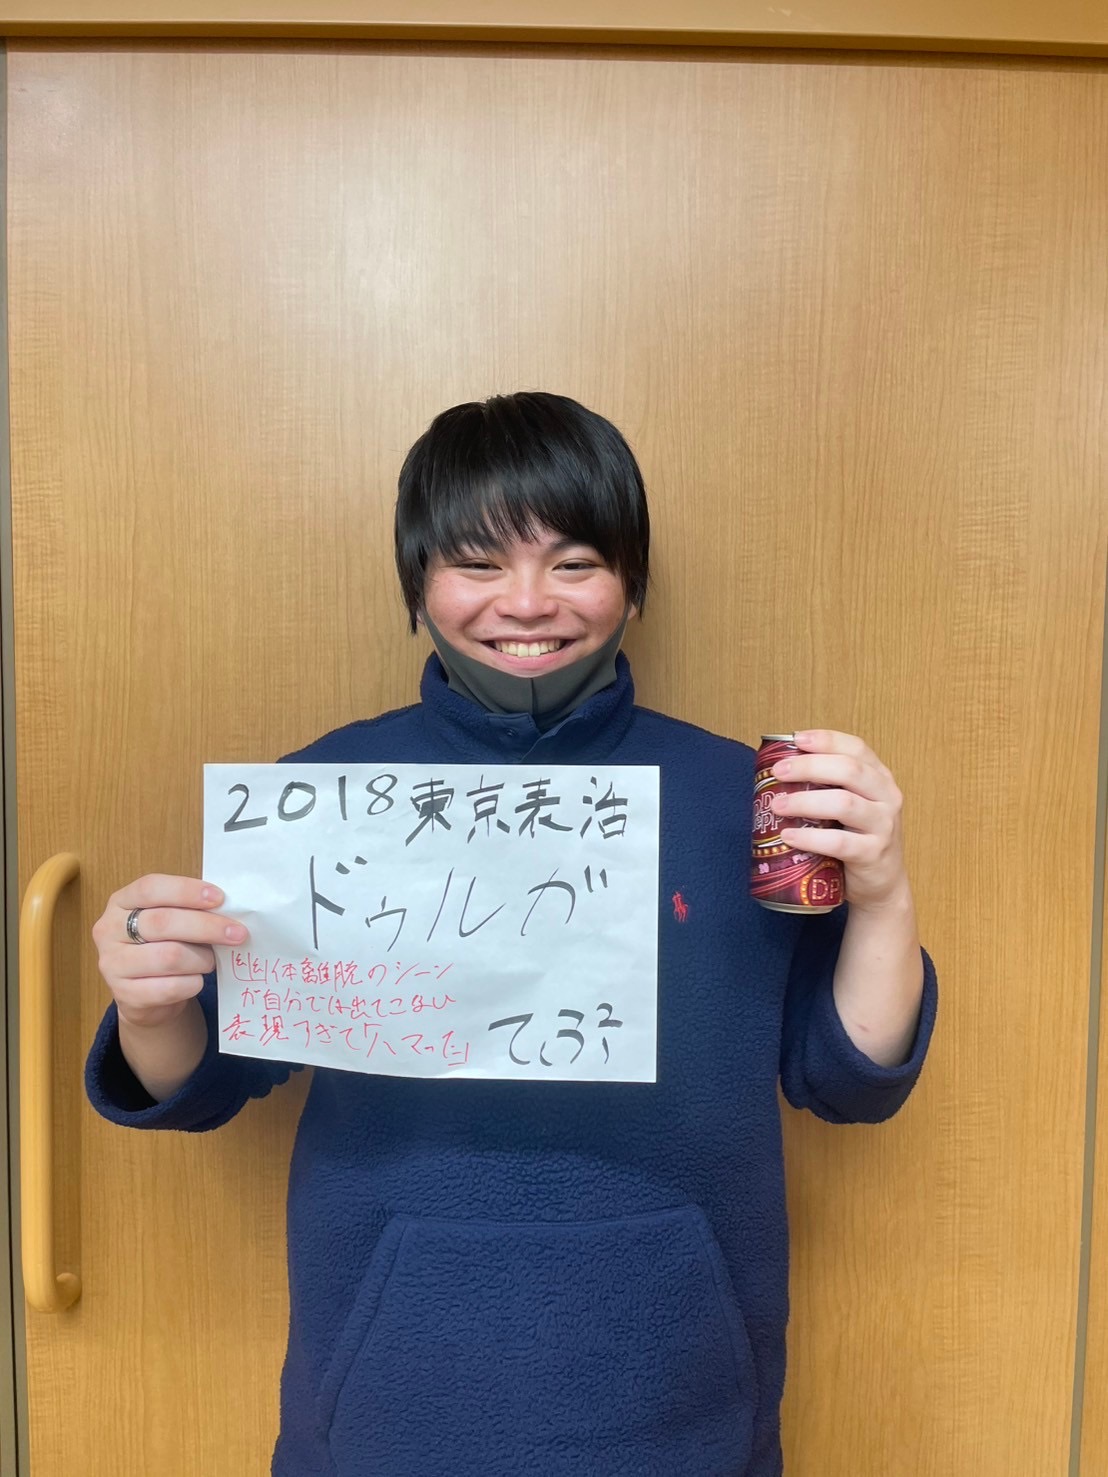 2018東京表治
ドゥルガ
幽体離脱のシーン
が自分では出てこない
表現すぎて「ハマった」
てぷ²
Dr
Pepp
DP